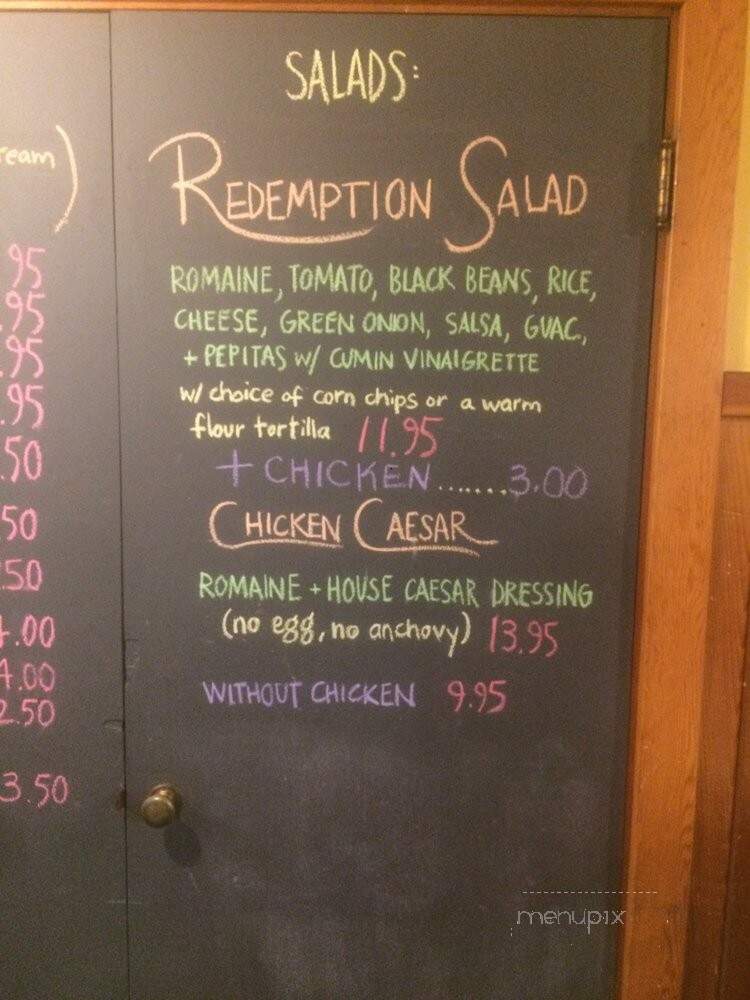 SALADS:
REDEMPTION SALAD
ROMAINE, TOMATO, BLACK BEANS, RICE,
CHEESE, GREEN ONION, SALSA, GUAC,
+ PEPITAS W/ CUMIN VINAIGRETTE
w/ choice of corn chips or a warm
flour tortilla 11.95
+ CHICKEN.......3.00
CHICKEN CAESAR
ROMAINE + HOUSE CAESAR DRESSING
(no egg, no anchovy) 13.95
WITHOUT CHICKEN 9.95
ream)
95
.95
.95
.95
.50
50
.50
4.00
4.00
2.50
3.50
menupix